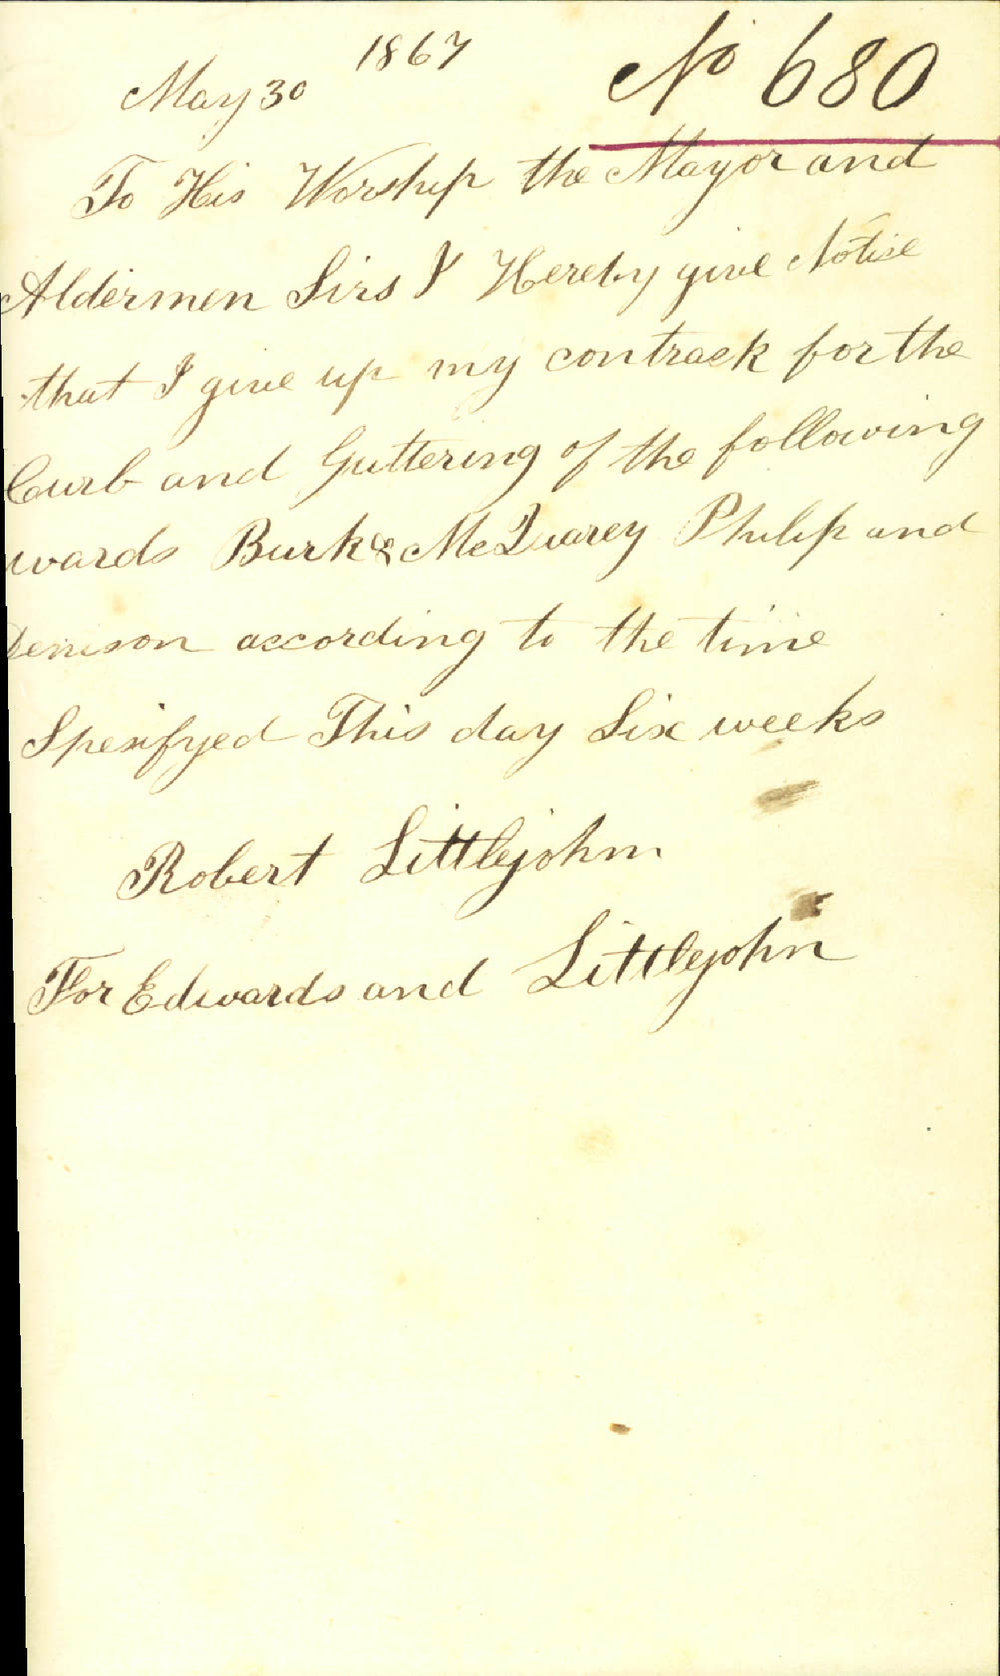 1867
May 30
No 680
To His Worship the Mayor and
Aldermen Sirs I Hereby give Notise
that I give up my contrack for the
Curb and Guttering of the following
wards Burk & McQuarey Philip and
Denison according to the time
Spesifyed This day Six weeks
Robert Littlejohn
For Edwards and Littlejohn